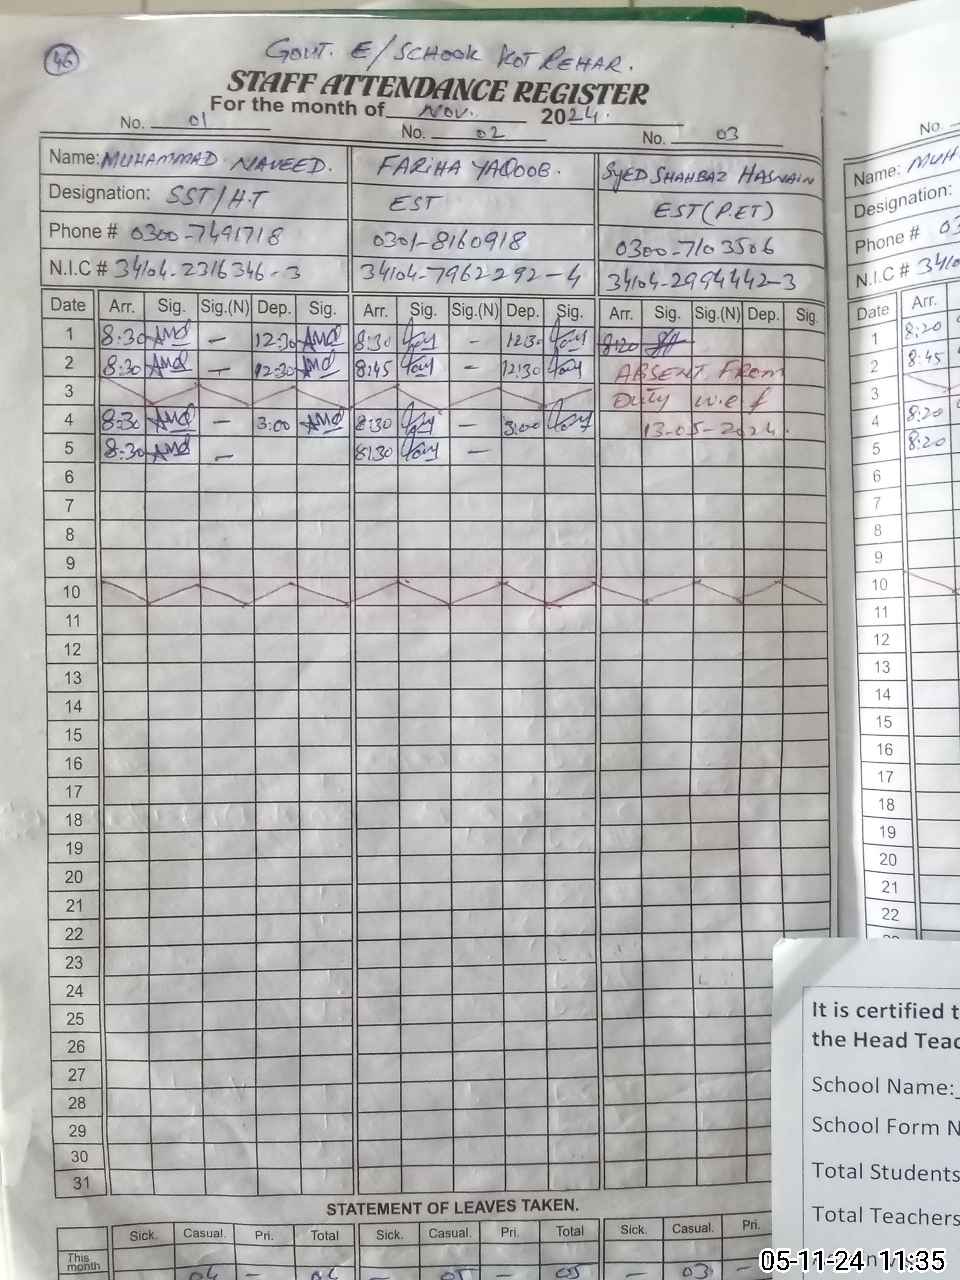 46
GOVT. E/SCHOOL KOT REHAR.
STAFF ATTENDANCE REGISTER
For the month of Nov. 2024.
No. 01 No. 02 No. 03
Name: MUHAMMAD NAVEED. FARIHA YAQOOB. SYED SHAHBAZ HASNAIN
Designation: SST/H.T EST EST(P.ET)
Phone # 0300-7491718 0301-8160918 0300-7103506
N.I.C # 34104-2316346-3 34104-7962292-4 34104-2994442-3
Date Arr. Sig. Sig.(N) Dep. Sig. Arr. Sig. Sig.(N) Dep. Sig. Arr. Sig. Sig.(N) Dep. Sig.
1 8:30 - 12:30 8:30 - 12:30 8:20
2 8:30 - 12:30 8:45 - 12:30 ABSENT FROM
3 Duty w.e.f
4 8:30 - 3:00 8:30 - 3:00 13-05-2024.
5 8:30 - 8:30 -
6
7
8
9
10
11
12
13
14
15
16
17
18
19
20
21
22
23
24
25
26
27
28
29
30
31
STATEMENT OF LEAVES TAKEN.
Sick. Casual. Pri. Total Sick. Casual. Pri. Total Sick. Casual. Pri.
This
month 04 - 04 - 05 - 05 - 03 -
No.
Name: MUH
Designation:
Phone # 03
N.I.C # 3410
Date Arr.
1 8:20
2 8:45
3
4 8:20
5 8:20
6
7
8
9
10
11
12
13
14
15
16
17
18
19
20
21
22
It is certified t
the Head Teac
School Name:
School Form N
Total Students
Total Teachers
05-11-24 11:35